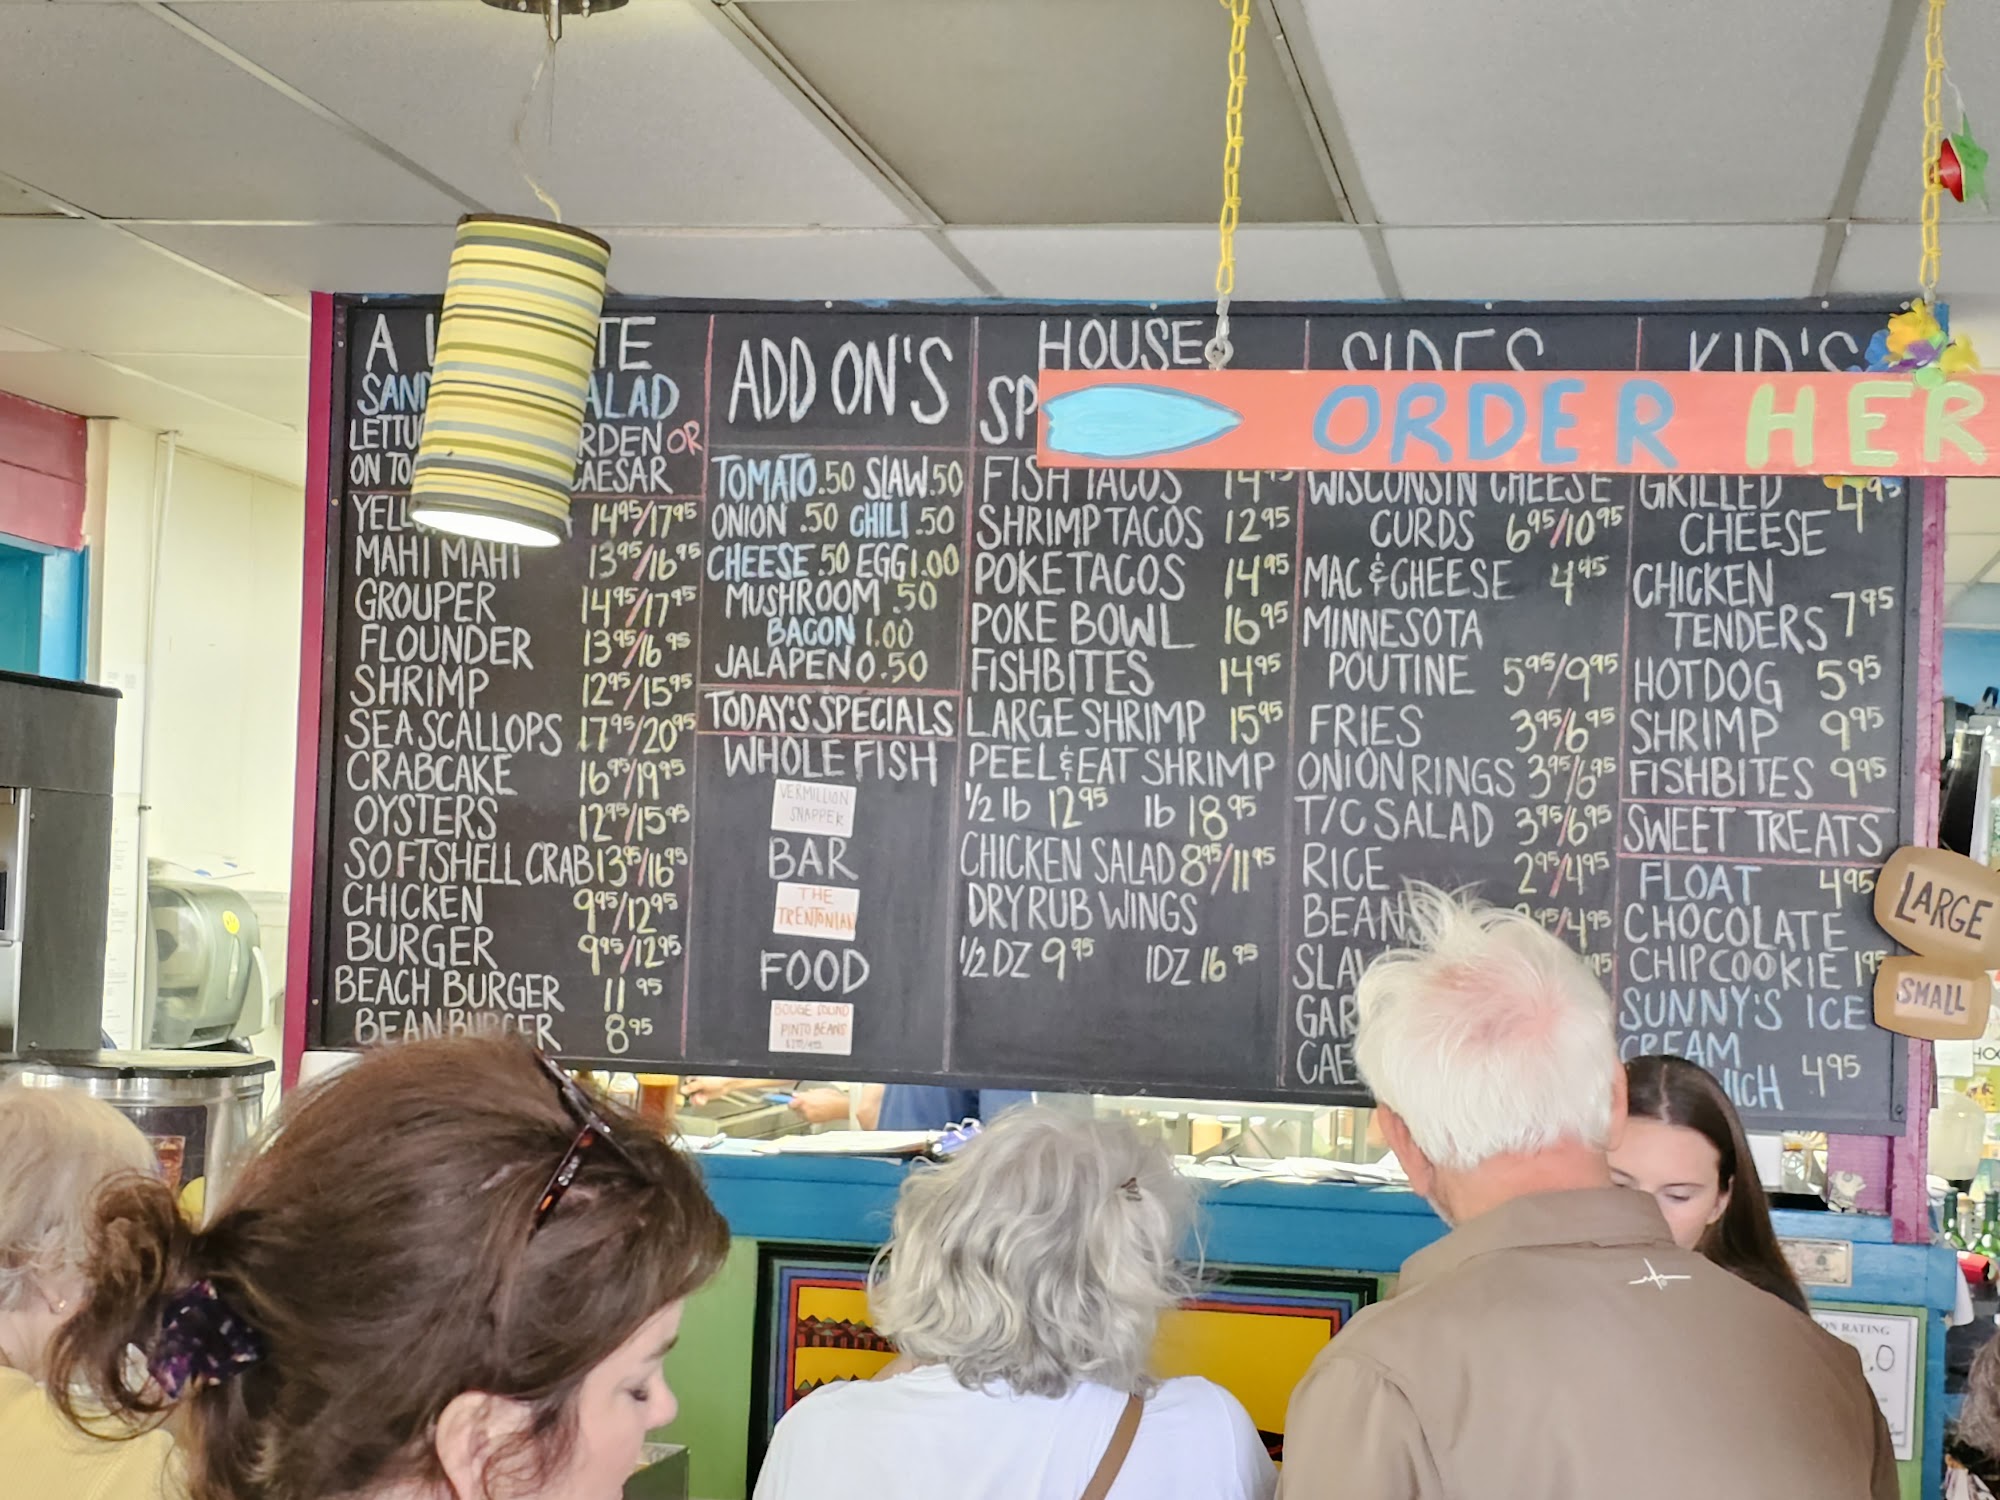 A TE
SAND ALAD
LETTU RDEN OR
ON TO CAESAR
YELL 14⁹⁵/17⁹⁵
MAHI MAHI 13⁹⁵/16⁹⁵
GROUPER 14⁹⁵/17⁹⁵
FLOUNDER 13⁹⁵/16⁹⁵
SHRIMP 12⁹⁵/15⁹⁵
SEA SCALLOPS 17⁹⁵/20⁹⁵
CRABCAKE 16⁹⁵/19⁹⁵
OYSTERS 12⁹⁵/15⁹⁵
SOFTSHELL CRAB 13⁹⁵/16⁹⁵
CHICKEN 9⁹⁵/12⁹⁵
BURGER 9⁹⁵/12⁹⁵
BEACH BURGER 11⁹⁵
BEAN BURGER 8⁹⁵
ADD ON'S
TOMATO .50 SLAW .50
ONION .50 CHILI .50
CHEESE .50 EGG 1.00
MUSHROOM .50
BACON 1.00
JALAPENO .50
TODAY'S SPECIALS
WHOLE FISH
VERMILLION
SNAPPER
BAR
THE
TRENTONIAN
FOOD
PINTO BEANS
HOUSE
SP
FISH TACOS 14⁹⁵
SHRIMP TACOS 12⁹⁵
POKE TACOS 14⁹⁵
POKE BOWL 16⁹⁵
FISHBITES 14⁹⁵
LARGE SHRIMP 15⁹⁵
PEEL & EAT SHRIMP
½ lb 12⁹⁵ lb 18⁹⁵
CHICKEN SALAD 8⁹⁵/11⁹⁵
DRY RUB WINGS
½ DZ 9⁹⁵ 1DZ 16⁹⁵
ORDER HER
SIDES
WISCONSIN CHEESE
CURDS 6⁹⁵/10⁹⁵
MAC & CHEESE 4⁹⁵
MINNESOTA
POUTINE 5⁹⁵/9⁹⁵
FRIES 3⁹⁵/6⁹⁵
ONION RINGS 3⁹⁵/6⁹⁵
T/C SALAD 3⁹⁵/6⁹⁵
RICE 2⁹⁵/4⁹⁵
BEANS ⁹⁵/4⁹⁵
SLAW ⁹⁵
GAR
CAE
KID'S
GRILLED 4⁹⁵
CHEESE
CHICKEN
TENDERS 7⁹⁵
HOTDOG 5⁹⁵
SHRIMP 9⁹⁵
FISHBITES 9⁹⁵
SWEET TREATS
FLOAT 4⁹⁵
CHOCOLATE
CHIP COOKIE 1⁹⁵
SUNNY'S ICE
CREAM
WICH 4⁹⁵
LARGE
SMALL
ON RATING